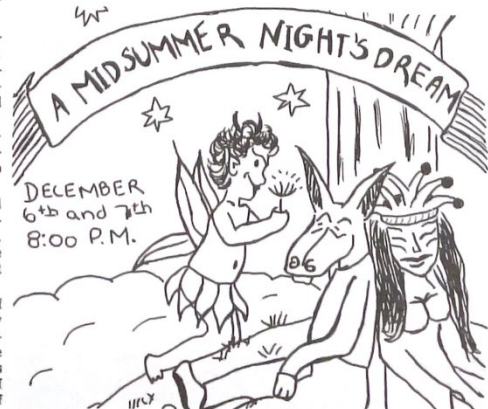 A MIDSUMMER NIGHT'S DREAM
DECEMBER
6th and 7th
8:00 P.M.